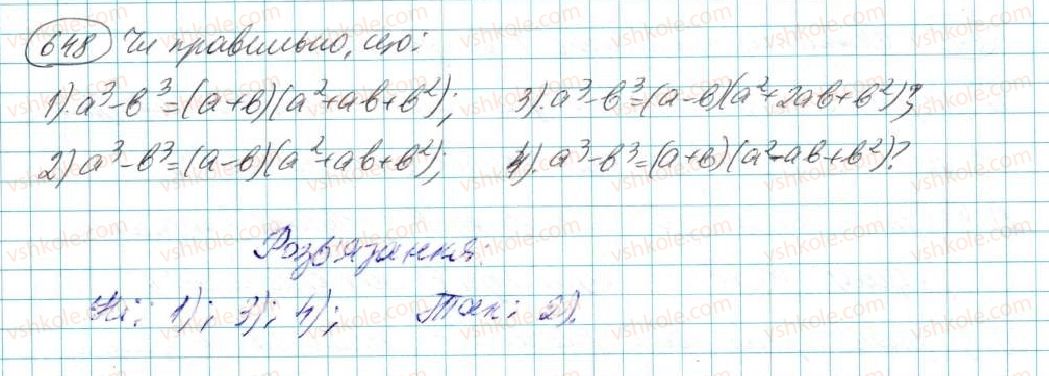 648 Чи правильно, що:
1). a³-b³=(a+b)(a²+ab+b²); 3). a³-b³=(a-b)(a²+2ab+b²);
2) a³-b³=(a-b)(a²+ab+b²); 4). a³-b³=(a+b)(a²-ab+b²)?
Розв'язання:
Ні: 1); 3); 4); Так: 2).